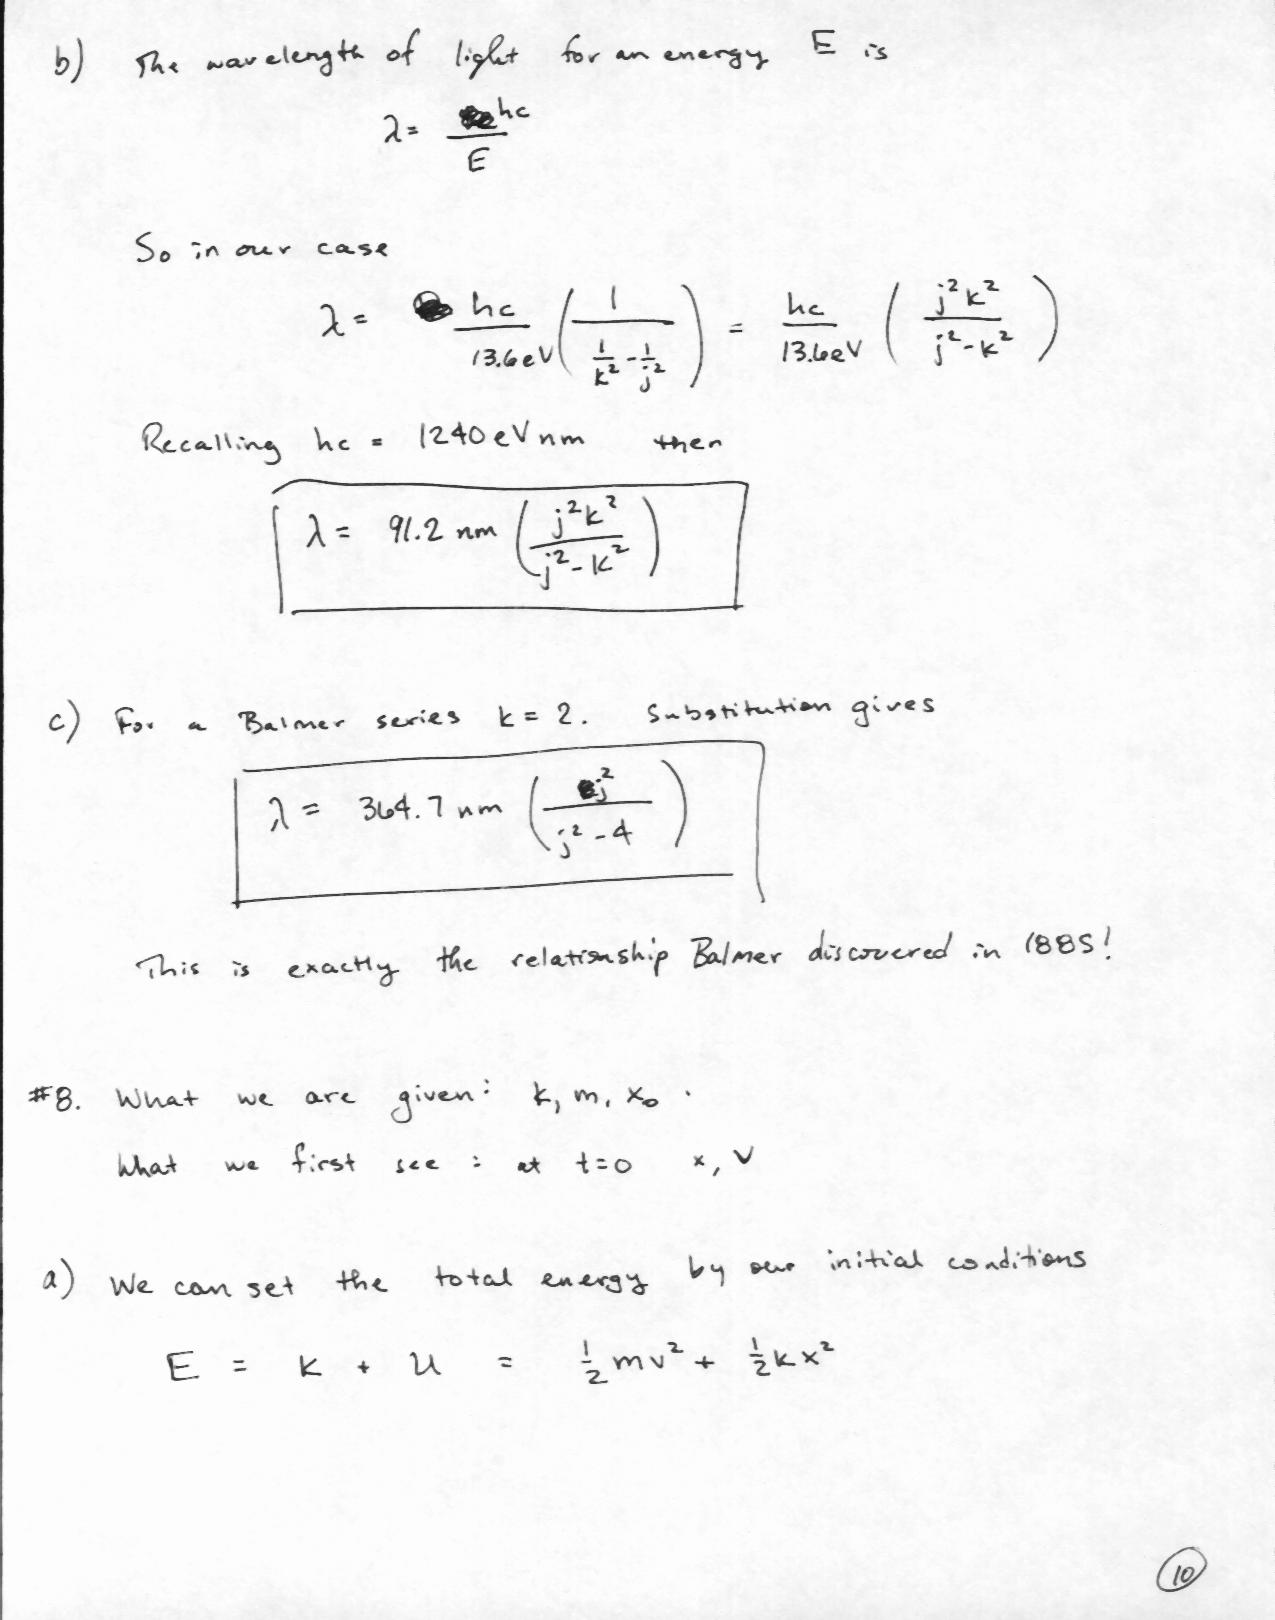 b) The wavelength of light for an energy E is
λ = hc/E
So in our case
λ = hc/13.6eV (1/(1/k² - 1/j²)) = hc/13.6eV (j²k²/(j²-k²))
Recalling hc = 1240 eV nm then
λ = 91.2 nm (j²k²/(j²-k²))
c) For a Balmer series k = 2. Substitution gives
λ = 364.7 nm (j²/(j²-4))
This is exactly the relationship Balmer discovered in 1885!
#8. What we are given: k, m, x₀.
What we first see: at t=0 x, v
a) We can set the total energy by our initial conditions
E = K + U = ½mv² + ½kx²
10